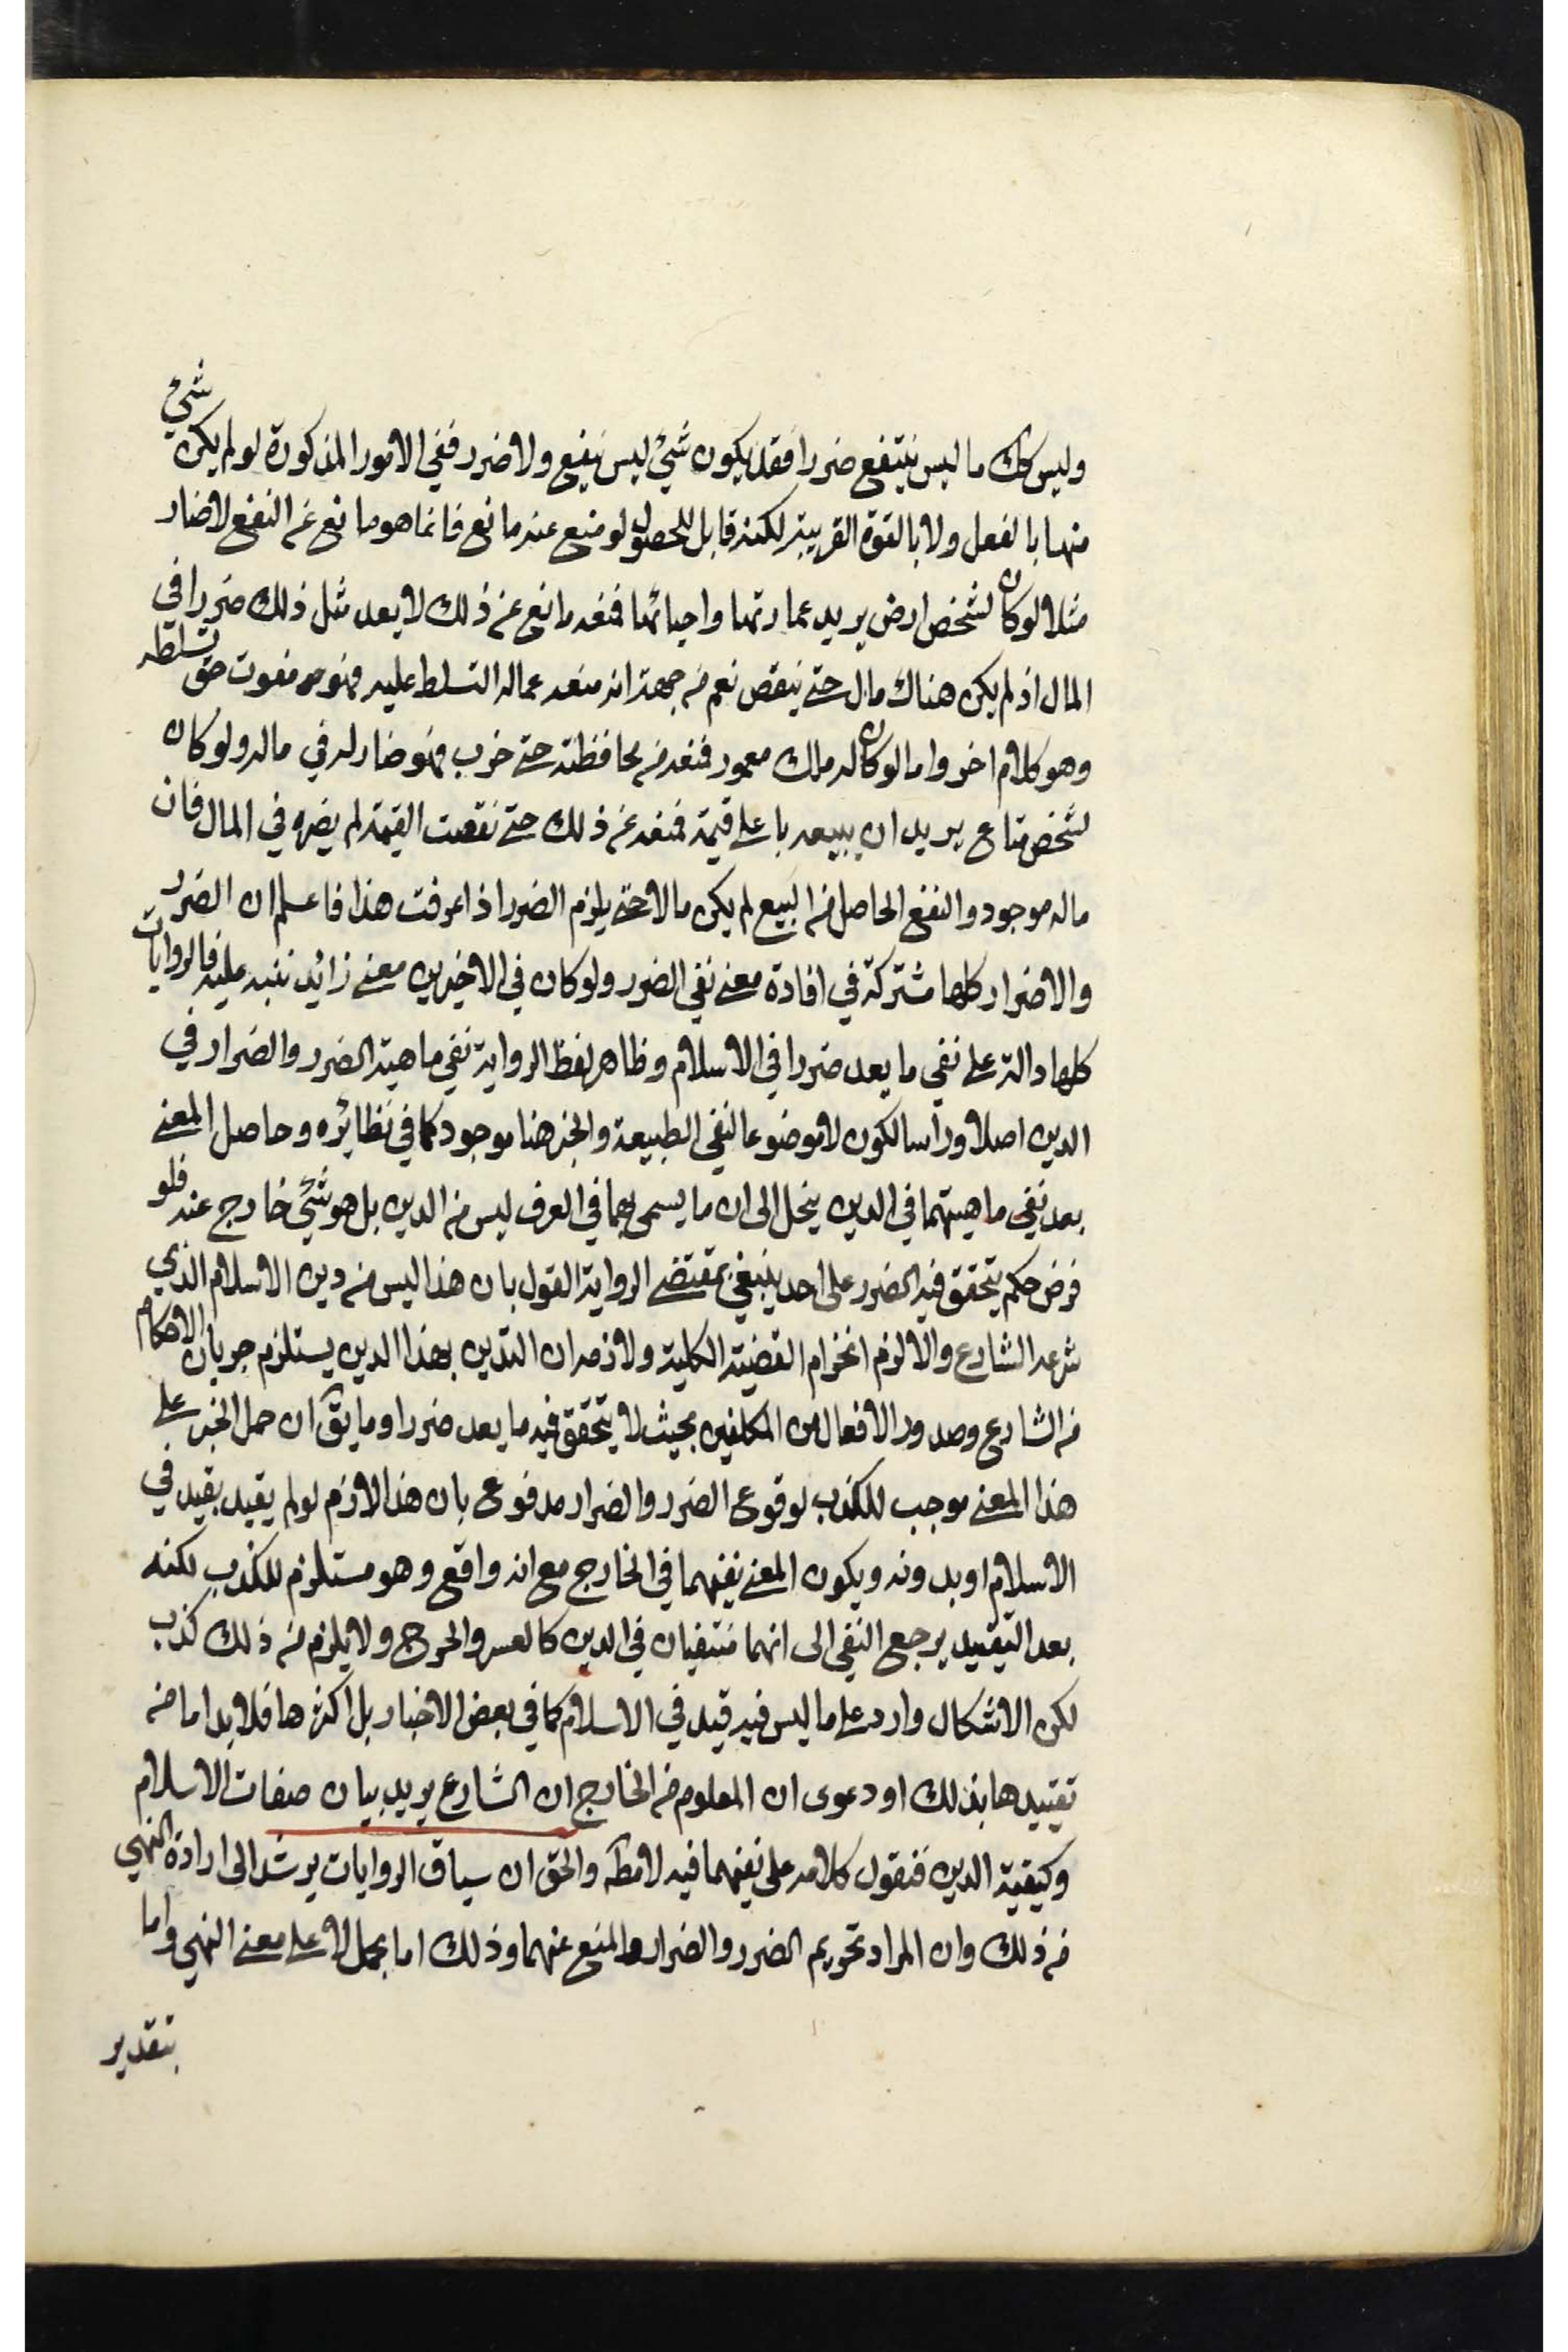 وليس كك ما ليس ينتفع ضررا فقد يكون شيء ليس بنفع ولا ضرر ففي الامور المذكورة لو لم يكن شيء
منها بالفعل ولا بالقوة القريبة لكنه قابل للحصول لو منع عنه مانع فانما هو مانع عن النفع لا ضار
مثلا لو كان لشخص ارض يريد عمارتها واحيائها فمنعه مانع عن ذلك لا يعد مثل ذلك ضررا في
المال اذ لم يكن هناك مال حتى ينقص نعم من جهة انه منعه عماله التسلط عليه فهو مفوت حق تسلطه
وهو كلام اخر واما لو كان له ملك معمور فمنعه من محافظته حتى خرب فهو ضار له في ماله ولو كان
لشخص متاع يريد ان يبيعه باعلى قيمة فمنعه عن ذلك حتى نقصت القيمة لم يضره في المال فان
ماله موجود والنفع الحاصل من البيع لم يكن مالا حتى يلزم الضرر اذا عرفت هذا فاعلم ان الضرر
والاضرار كلها مشتركة في افادة معنى نفي الضرر ولو كان في الاخيرين معنى زائد ننبه عليه فالروايات
كلها دالة على نفي ما يعد ضررا في الاسلام وظاهر لفظ الرواية نفي ماهية الضرر والضرار في
الدين اصلا وراسا لكون لا موضوعا لنفي الطبيعة والخبر هنا موجود كما في نظائره وحاصل المعنى
بعد نفي ماهيتهما في الدين ينحل الى ان ما يسمى بهما في العرف ليس من الدين بل هو شيء خارج عنه فلو
فرض حكم يتحقق فيه الضرر على احد ينبغي بمقتضى الرواية القول بان هذا ليس من دين الاسلام الذي
شرعه الشارع والا لزم انخرام القضية الكلية ولازمه ان التدين بهذا الدين يستلزم جريان الاحكام
من الشارع وصدور الافعال من المكلفين بحيث لا يتحقق فيه ما يعد ضررا وما يق ان حمل الخبر على
هذا المعنى موجب للكذب لوقوع الضرر والضرار مدفوع بان هذا لازم لو لم يقيد بقيد في
الاسلام او بدونه ويكون المعنى نفيهما في الخارج مع انه واقع وهو مستلزم للكذب لكنه
بعد التقييد يرجع النفي الى انهما منتفيان في الدين كالعسر والحرج ولا يلزم من ذلك كذب
لكن الاشكال وارد على ما ليس فيه قيد في الاسلام كما في بعض الاخبار بل اكثرها فلا بد اما من
تقييدها بذلك او دعوى ان المعلوم من الخارج ان الشارع يريد بيان صفات الاسلام
وكيفية الدين فنقول كلامه على نفيهما فيه لا مطه والحق ان سياق الروايات يرشد الى ارادة النهي
من ذلك وان المراد تحريم الضرر والضرار والمنع عنهما وذلك اما بحمل لا على معنى النهي واما
بتقدير